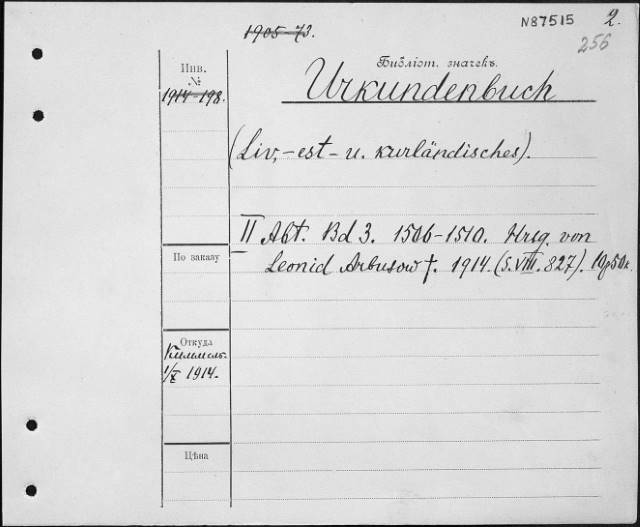 N87515 2.
1905-73.
256
Инв.
№
1914-198.
Библіот. значекъ.
Urkundenbuch
(Liv,-est- u. kurländisches).
II Abt. Bd 3. 1506-1510. Hrsg. von
Leonid Arbusow †. 1914. (S. VIII. 827). 10р50к.
По заказу
Откуда
Киммель.
1/X 1914.
Цѣна